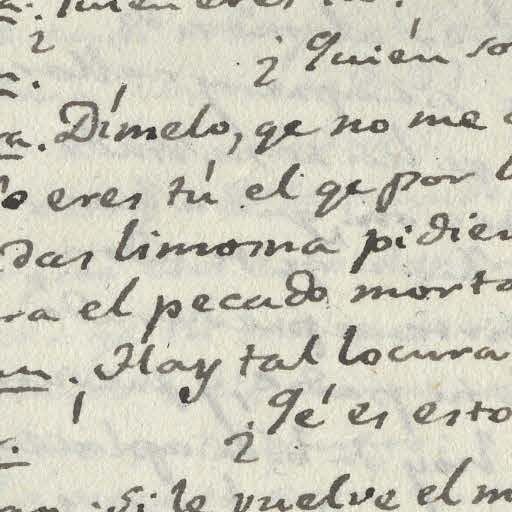 ¿Quién
Dímelo, qe no me
eres tú el qe por
das limosna pidien
ra el pecado morta
Hay tal locura
¿Qé es esto
Si le vuelve el m